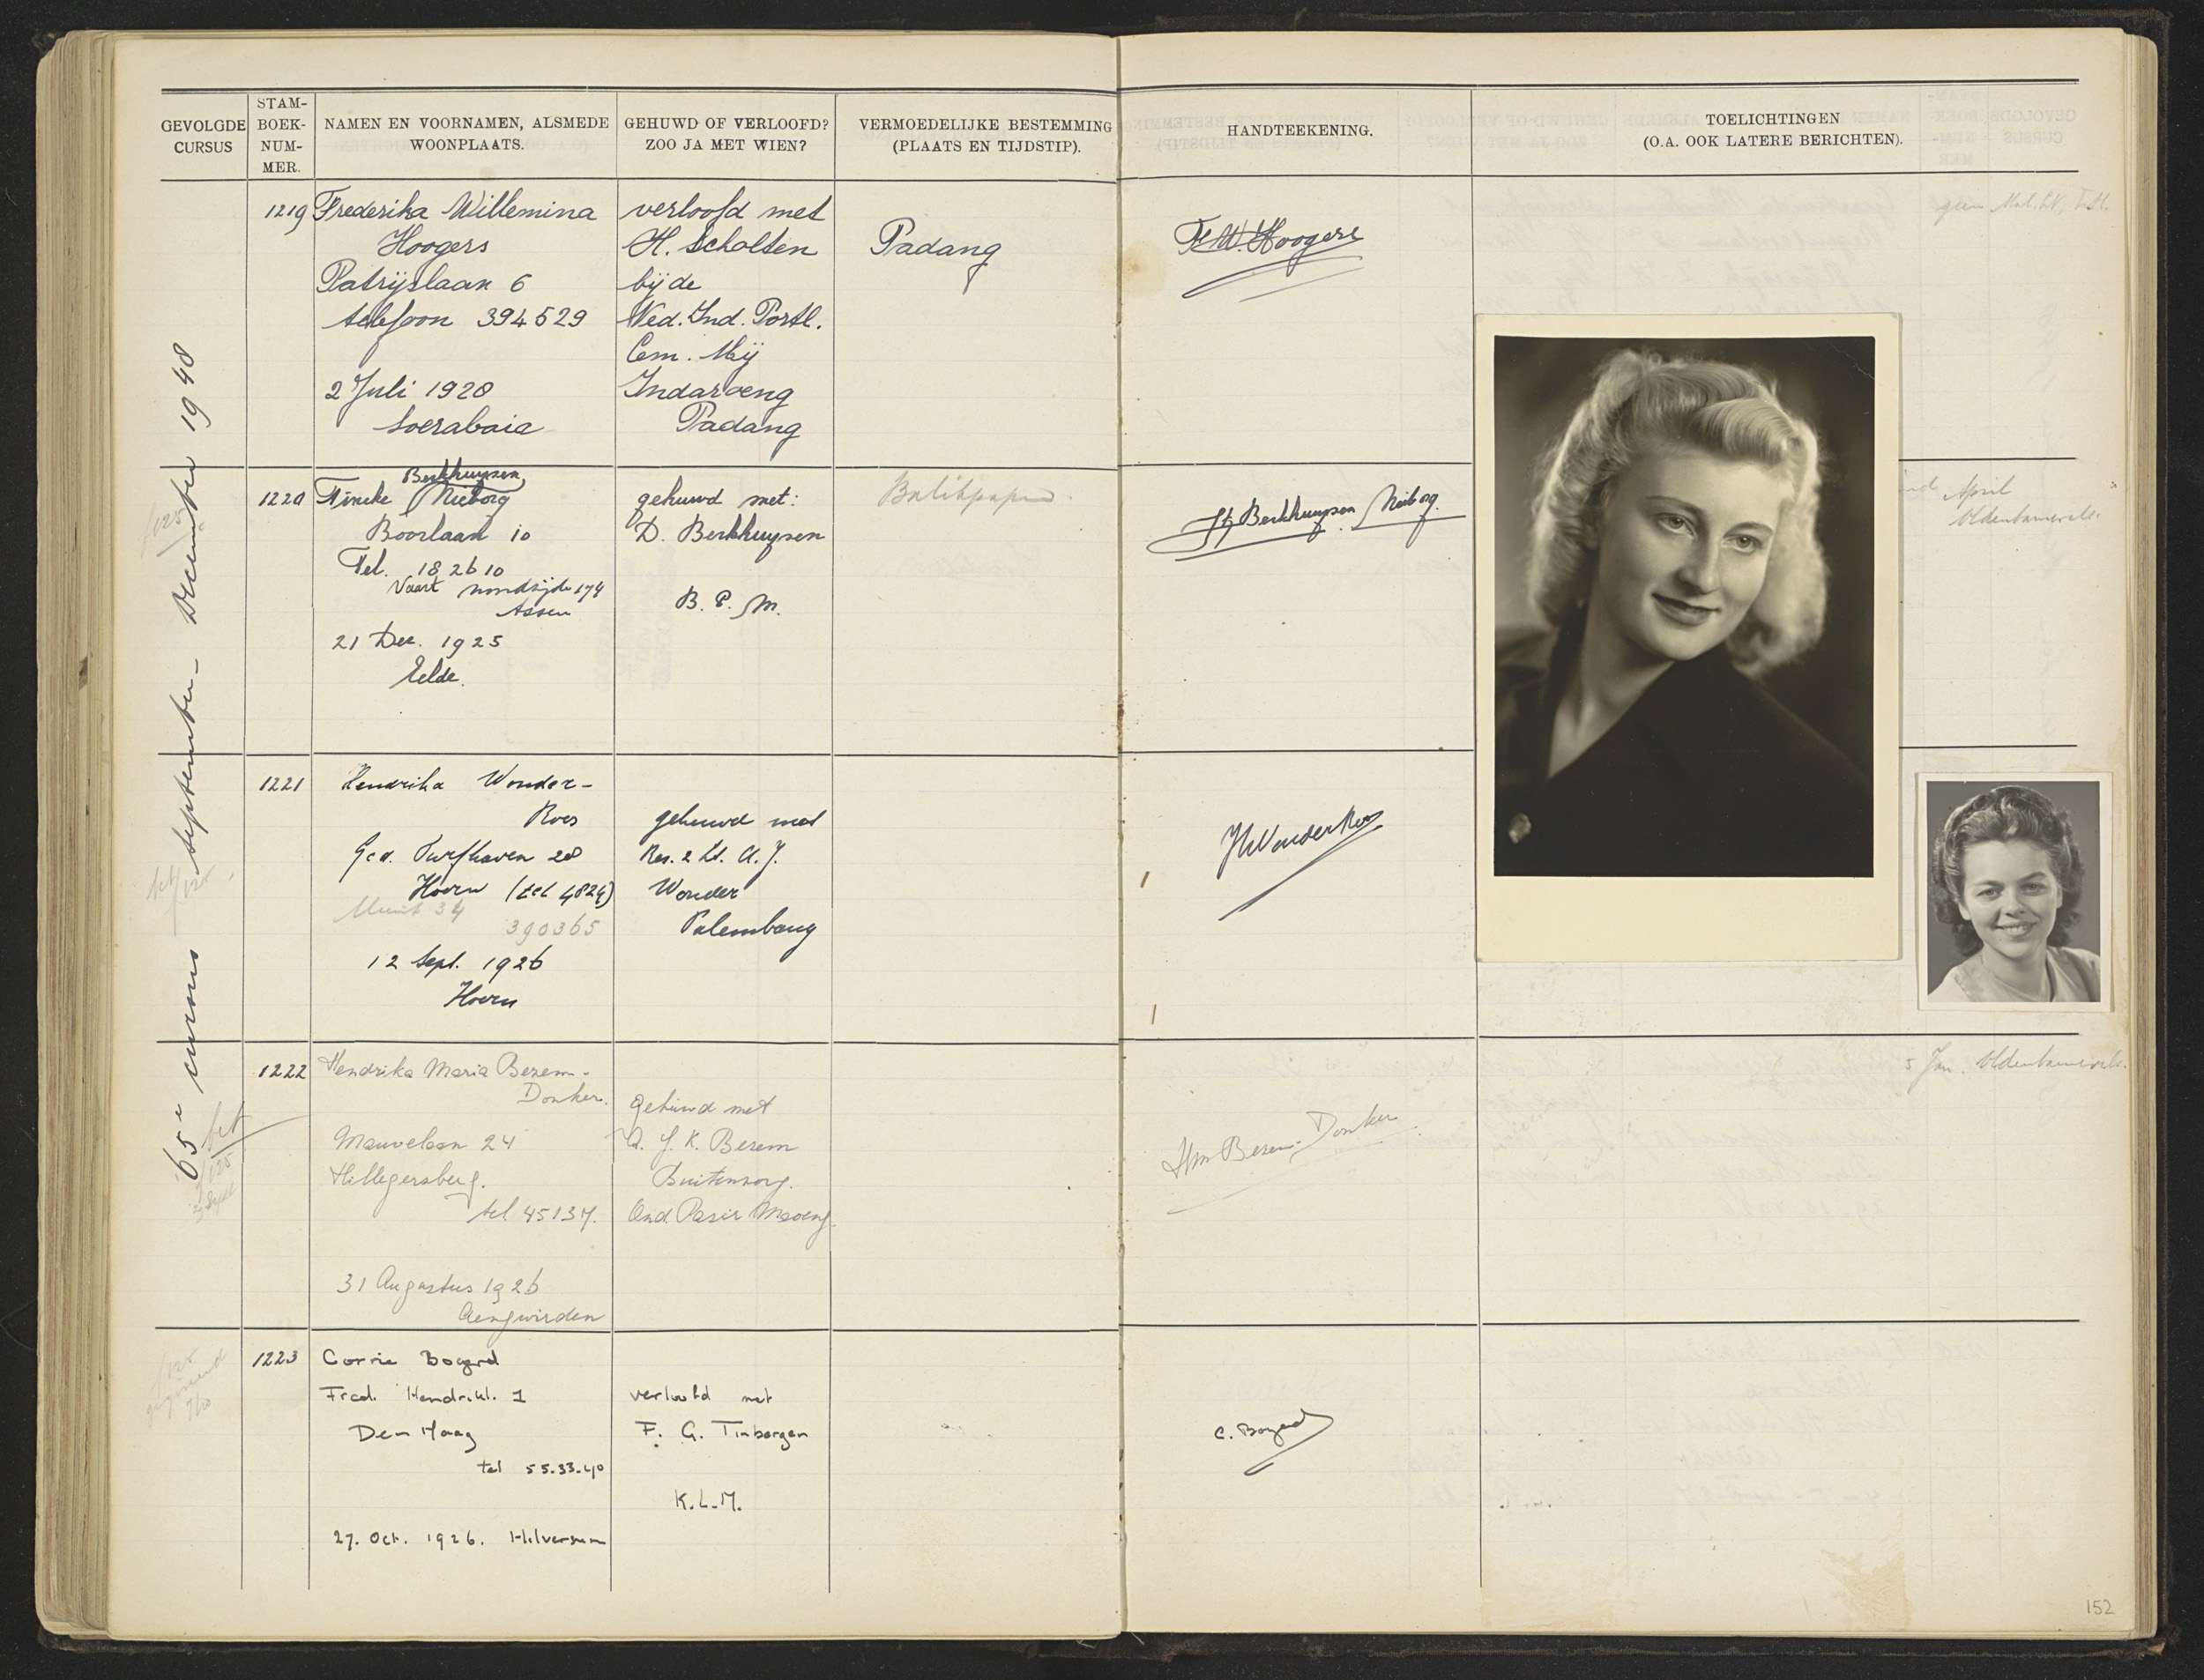 GEVOLGDE CURSUS
STAM-BOEK-NUM-MER.
NAMEN EN VOORNAMEN, ALSMEDE WOONPLAATS.
GEHUWD OF VERLOOFD? ZOO JA MET WIEN?
VERMOEDELIJKE BESTEMMING (PLAATS EN TIJDSTIP).
HANDTEEKENING.
TOELICHTINGEN (O.A. OOK LATERE BERICHTEN).
65e cursus September - December 1948
1219
Frederika Willemina
Hoogers
Patrijslaan 6
telefoon 394529
2 Juli 1928
Soerabaia
verloofd met
H. Scholten
bij de
Ned. Ind. Portl.
Cem. Mij
Indaroeng
Padang
Padang
F.W. Hoogers
1220
Berkhuysen
Tineke Nieborg
Boorlaan 10
Tel. 182610
Vaart noordzijde 174
Assen
21 Dec. 1925
Eelde.
gehuwd met:
D. Berkhuysen
B. P. M.
Balikpapan
Berkhuysen Nieborg.
April
Oldenbarnevelt.
1221
Hendrika Wonder-
Roos
Ged. Turfhaven 28
Hoorn (tel 4824)
Munt 34
390365
12 Sept. 1926
Hoorn
gehuwd met
Res. 2 Lt. A. J.
Wonder
Palembang
HWonderRoos
1222
Hendrika Maria Bezem-
Donker.
Mauvelaan 24
Hillegersberg.
tel 45137.
31 Augustus 1926
Aengwirden
gehuwd met
A. J. K. Bezem
Buitenzorg.
Ond. Pasir Maoeng
Hm Bezem-Donker
5 Jan. Oldenbarnevelt.
1223
Corrie Bogerd
Fred. Hendrikl. 1
Den Haag
tel 55.33.40
27. Oct. 1926. Hilversum
verloofd met
F. G. Tinbergen
K.L.M.
C. Bogerd
152